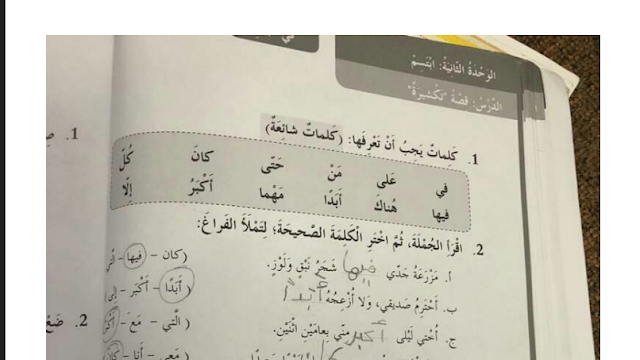 الوَحْدَةُ الثّانِيَةُ: ابْتَسِمْ
الدَّرْسُ: قِصَّةُ "تَكْشيرَةٌ"
1. كَلِماتٌ يَجِبُ أَنْ تَعْرِفَها: (كَلِماتٌ شائِعَةٌ)
في عَلى مَنْ حَتّى كانَ كُلّ
فيها هُناكَ أَبَدًا مَهْما أَكْبَرُ إِلّا
2. اقْرَأِ الْجُمْلَةَ، ثُمَّ اخْتَرِ الْكَلِمَةَ الصَّحيحَةَ؛ لِتَمْلَأَ الفَراغَ:
أ. مَزْرَعَةُ جَدّي فيها شَجَرُ نَبْقٍ وَلَوْزٍ. (كان - فيها -
ب. أَحْتَرِمُ صَديقي، وَلا أُزْعِجُهُ أبدًا (أَبَدًا - أَكْبَر -
ج. أُخْتي لَيْلى أكبر مِنّي بِعامَيْنِ اثْنَيْنِ. (الَّتي - مَعَ -
(مَعي - أَنا -
1.
2.